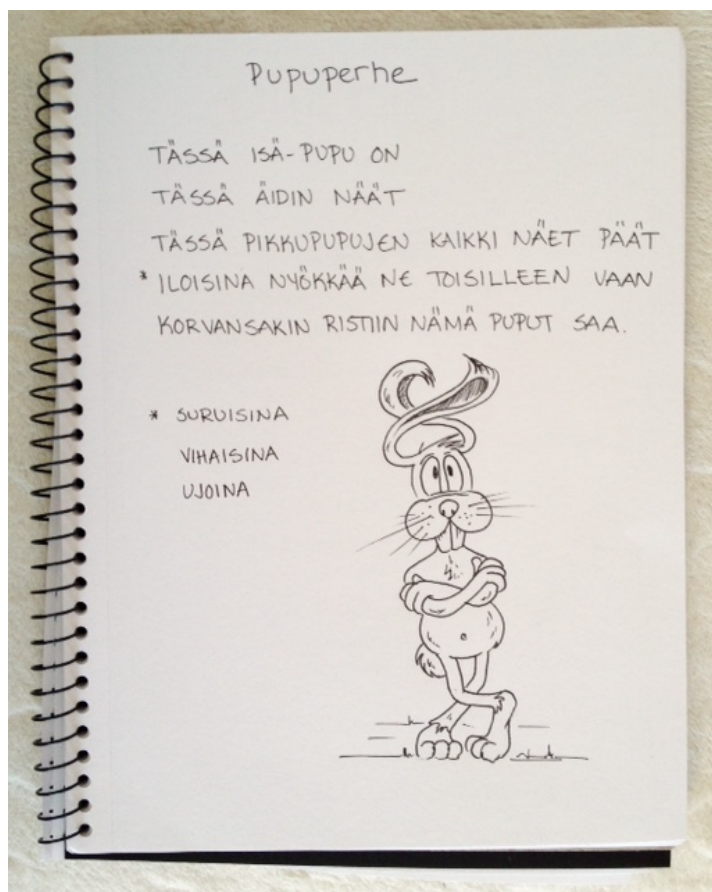 Pupuperhe
TÄSSÄ ISÄ-PUPU ON
TÄSSÄ ÄIDIN NÄÄT
TÄSSÄ PIKKUPUPUJEN KAIKKI NÄET PÄÄT
* ILOISINA NYÖKKÄÄ NE TOISILLEEN VAAN
KORVANSAKIN RISTIIN NÄMÄ PUPUT SAA.
* SURUISINA
VIHAISINA
UJOINA